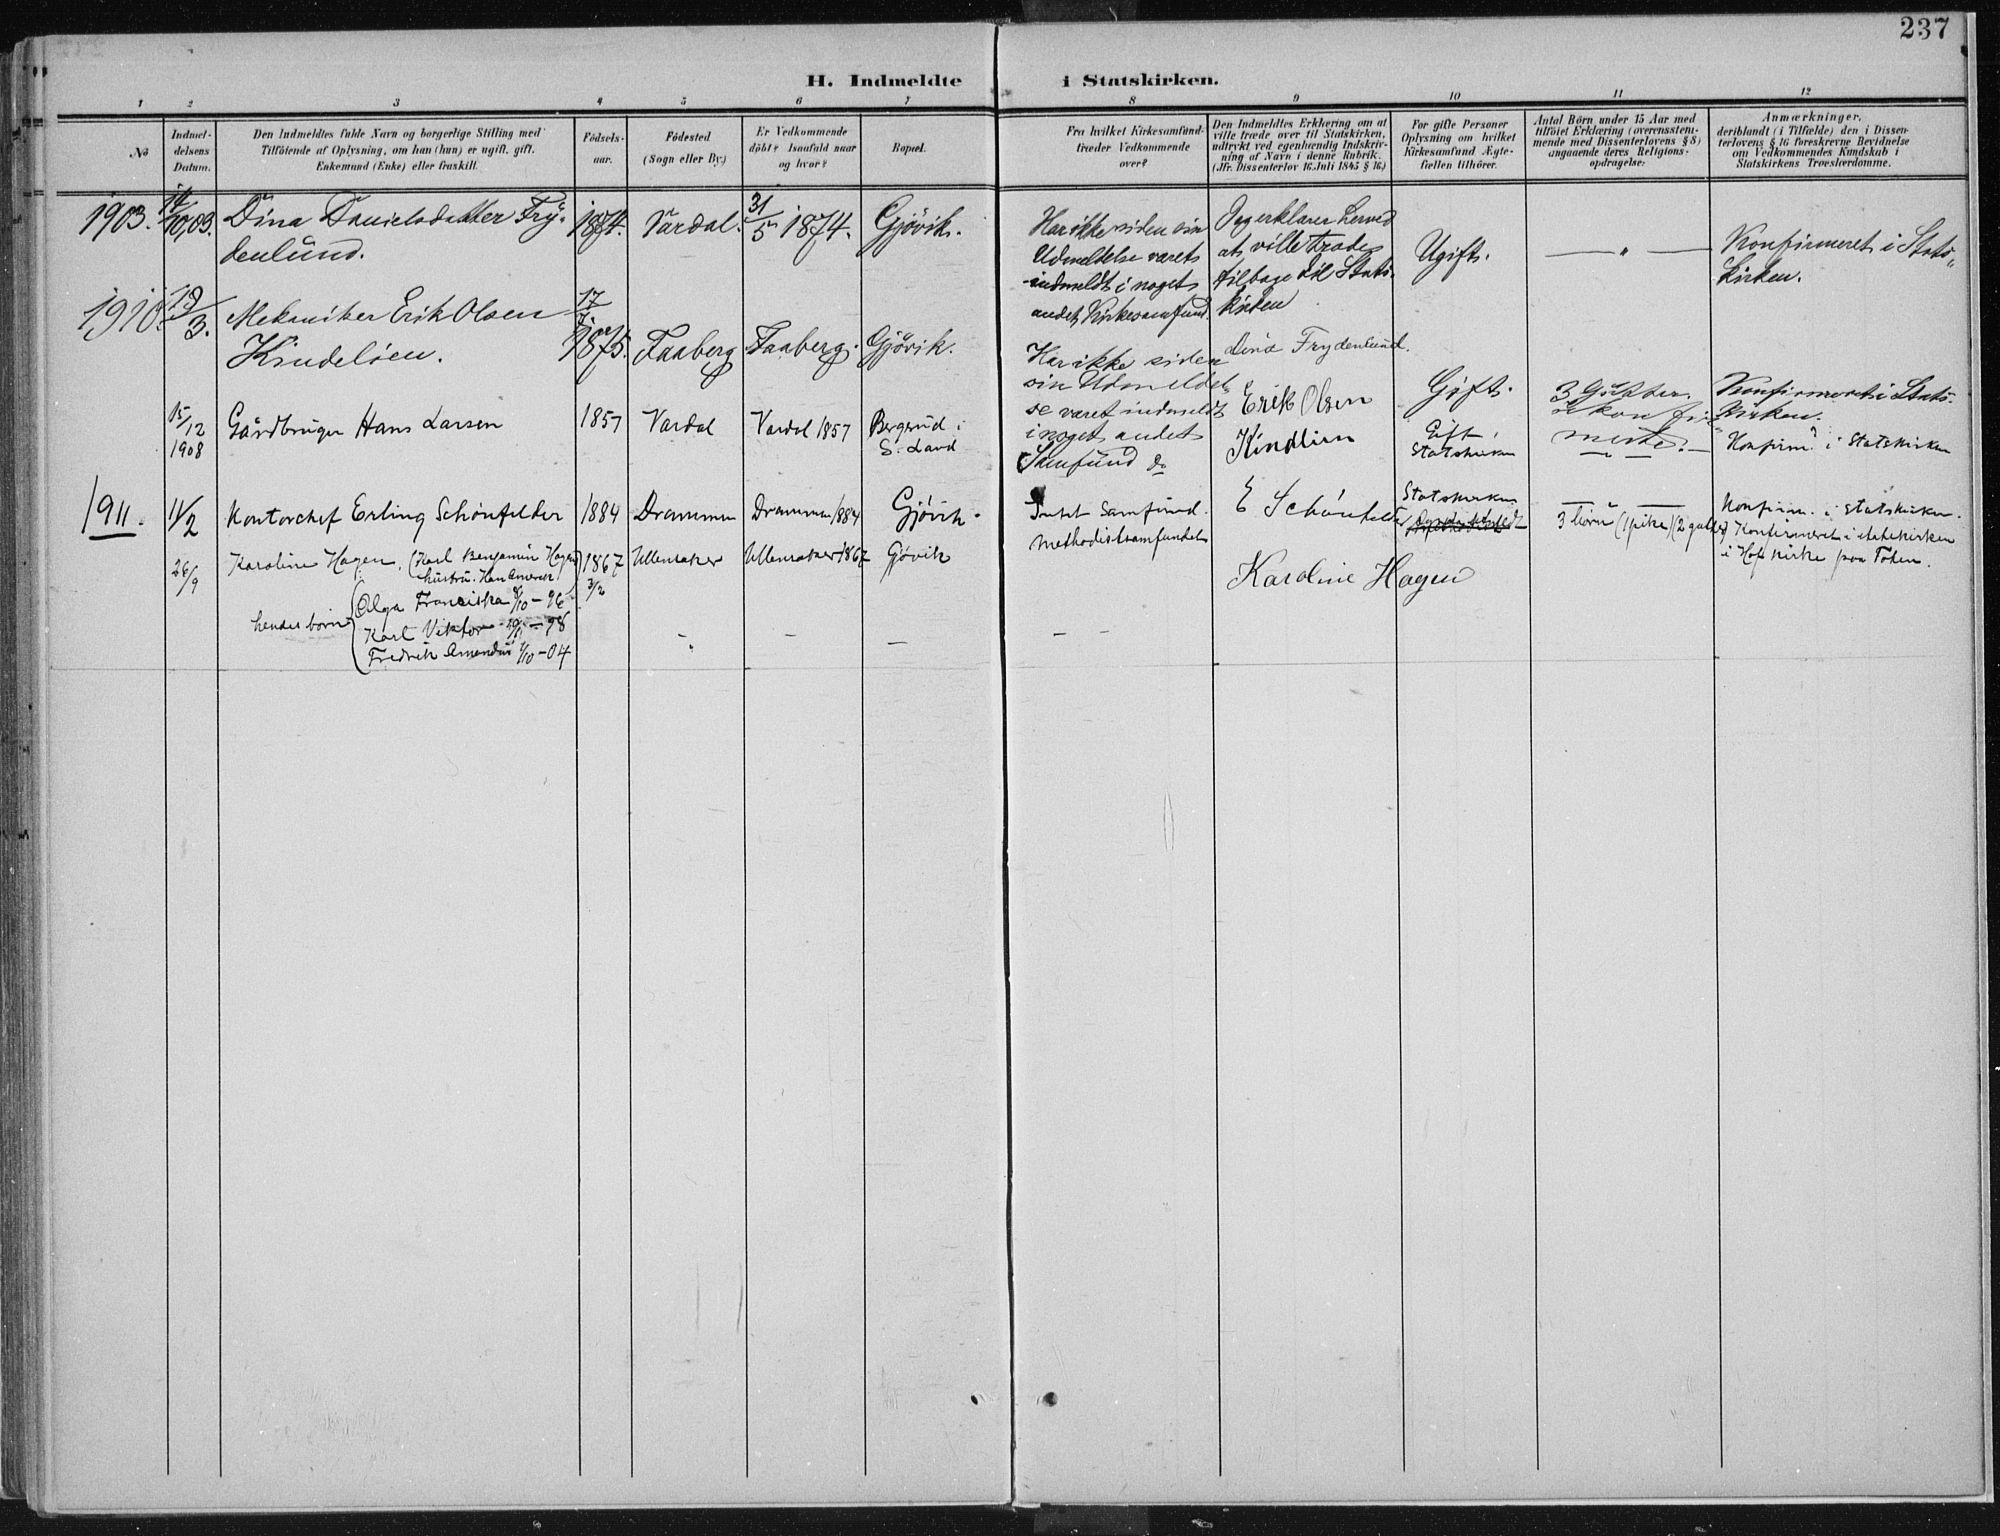 237
H. Indmeldte i Statskirken.
1 2 3 4 5 6 7 8 9 10 11 12
No
Indmel-
delsens
Datum.
Den Indmeldtes fulde Navn og borgerlige Stilling med
Tilföiende af Oplysning, om han (hun) er ugift, gift,
Enkemand (Enke) eller fraskilt.
Födsels-
aar.
Födested
(Sogn eller By.)
Er Vedkommende
döbt? Isaafald naar
og hvor?
Bopæl.
Fra hvilket Kirkesamfund
træder Vedkommende
over?
Den Indmeldtes Erklæring om at
ville træde over til Statskirken,
udtrykt ved egenhændig Indskriv-
ning af Navn i denne Rubrik.
(Jfr. Dissenterlov 16 Juli 1845 § 16.)
For gifte Personer
Oplysning om hvilket
Kirkesamfund Ægte-
fællen tilhörer.
Antal Börn under 15 Aar med
tilföiet Erklæring (overensstem-
mende med Dissenterlovens § 8)
angaaende deres Religions-
opdragelse.
Anmærkninger,
deriblandt (i Tilfælde) den i Dissen-
terlovens § 16 foreskrevne Bevidnelse
om Vedkommendes Kundskab i
Statskirkens Troeslærdomme.
1903.
10,03.
Dina Danielsdatter Fry-
denlund.
1874.
Vardal.
31/5 1874.
Gjøvik.
Har ikke siden sin
Udmeldelse været
indmeldt i noget
andet Kirkesamfund.
Jeg erklærer herved
at ville træde
tilbage til Stats-
kirken
Dina Frydenlund.
Ugift.
— " —
Konfirmeret i Stats-
kirken.
1910.
19/3.
Mekaniker Erik Olsen
Kindeløen.
17/7
1875.
Faaberg
Faaberg.
Gjøvik.
Har ikke siden
sin Udmeldel-
se været indmeldt
i noget andet
Samfund
Erik Olsen
Kindlien
Gift.
3 Gutter.
Konfirmeret i Stats-
kirken.
15/12
1908
Gårdbruger Hans Larsen
1857
Vardal
Vardal 1857
Bergerud i
S. Land
do
Gift,
Statskirken
— —
Konfirm. i Statskirken
1911.
11/2
Kontorchef Erling Schönfelder
1884
Drammen
Drammen 1884
Gjøvik.
Intet Samfund.
E Schönfelder
Statskirken
Konfirm. i Statskirken.
26/9
Karoline Hagen, (Karl Benjamin Hagen
hustru. Han Amerik
1867
3/2
Ullensaker
Ullensaker 1867
Gjøvik
Methodistsamfundet
Karoline Hagen
3 börn (1 pike) (2 gutter)
Konfirmeret i statskirken
i Hof kirke paa Toten.
hendes börn
Olga Franciska /10 - 96
Karl Viktor - 98
Fredrik Amandus /10 - 04